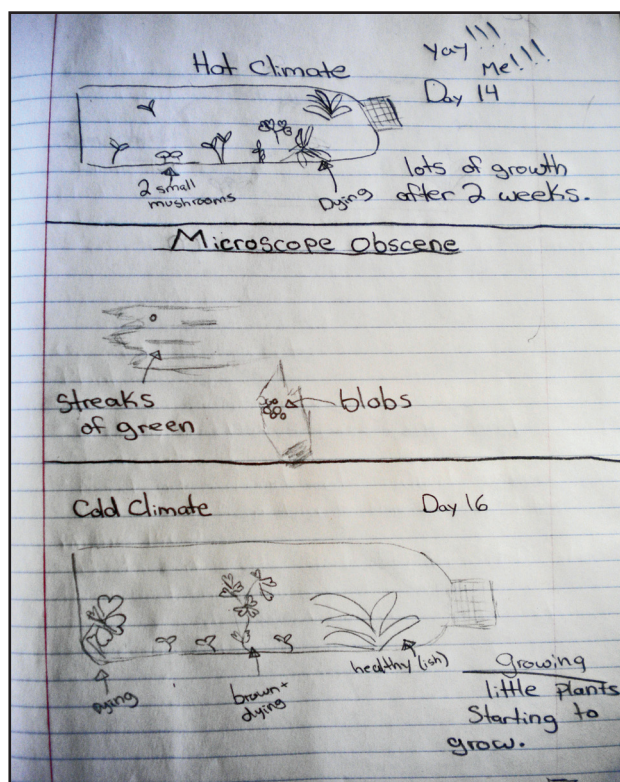 yay!!!
Me!!!
Hot Climate
Day 14
2 small
mushrooms
Dying
lots of growth
after 2 weeks.
Microscope Obscene
Streaks
of green
blobs
Cold Climate
Day 16
Dying
brown+
dying
healthy(ish)
growing
little plants
Starting to
grow.